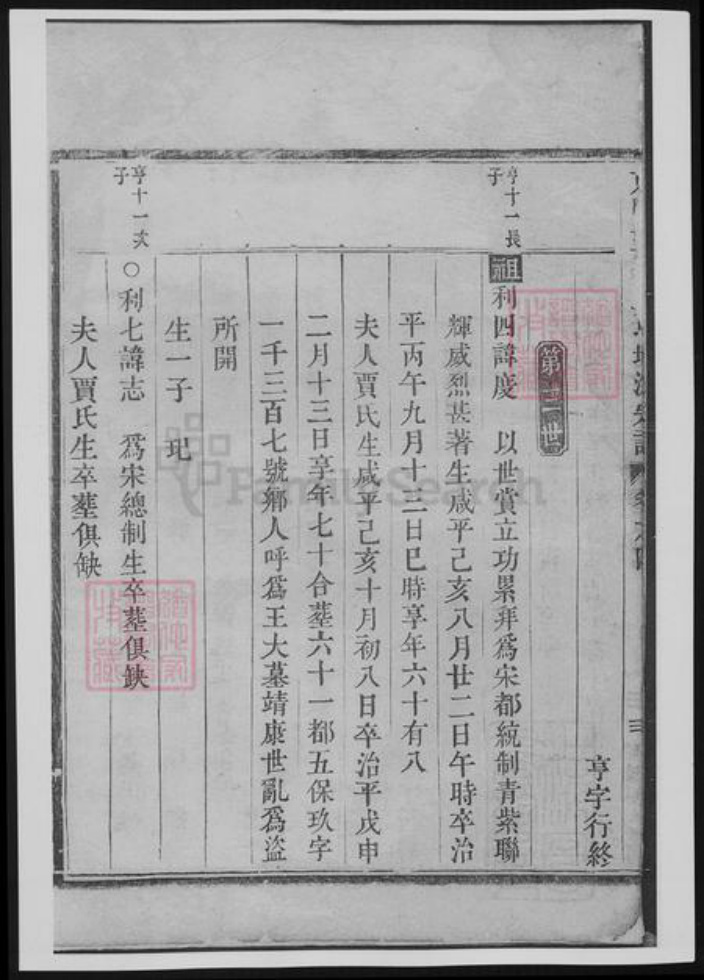 亨字行終
第二世
亨十一長子
祖利四諱度　以世賞立功累拜爲宋都統制青紫聯
輝威烈甚著生咸平己亥八月廿二日午時卒治
平丙午九月十三日巳時享年六十有八
夫人賈氏生咸平己亥十月初八日卒治平戊申
二月十三日享年七十合塟六十一都五保玖字
一千三百七號鄉人呼爲王大墓靖康世亂爲盜
所開
生一子　玘
亨十一次子
○利七諱志　爲宋總制生卒塟俱缺
夫人賈氏生卒塟俱缺
FamilySearch